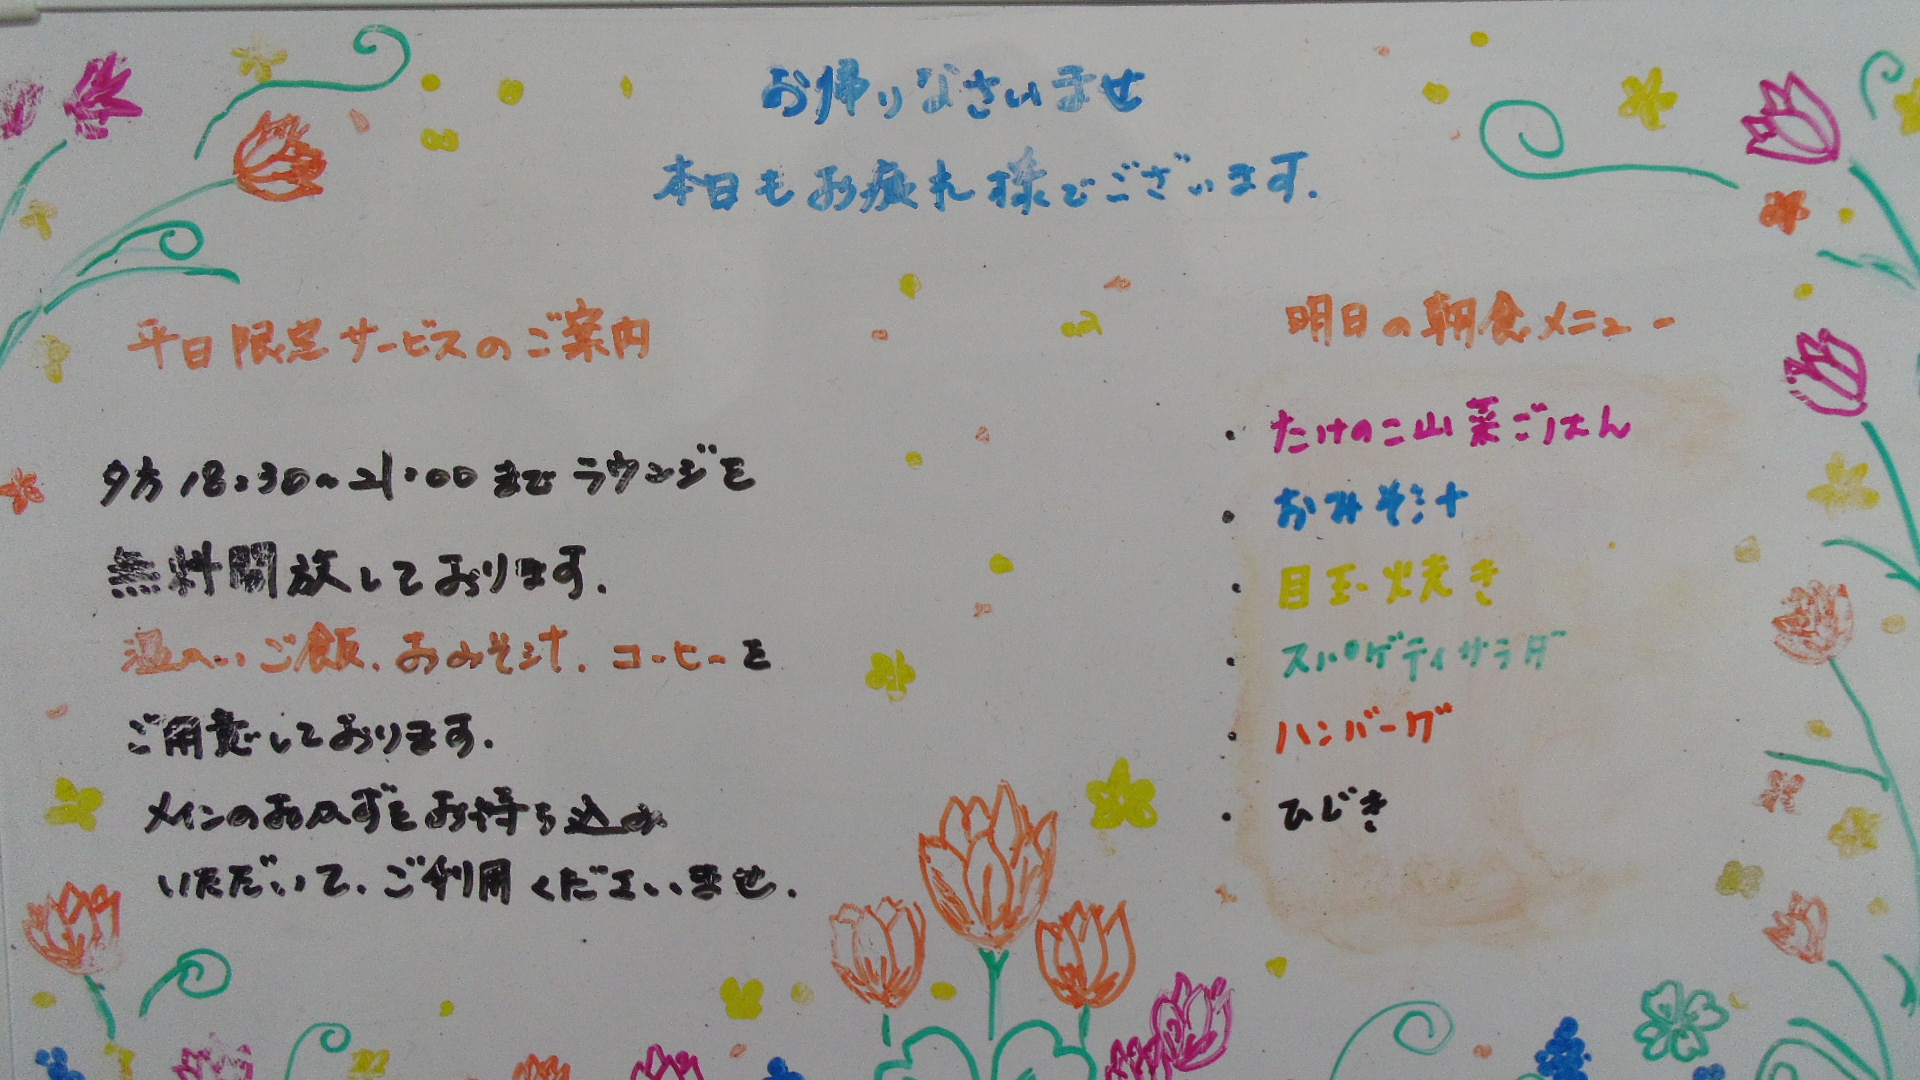 お帰りなさいませ
本日もお疲れ様でございます.
平日限定サービスのご案内
夕方18:30〜21:00までラウンジを
無料開放しております.
温かいご飯.おみそ汁.コーヒーを
ご用意しております.
メインのおかずをお持ち込み
いただいて.ご利用くださいませ.
明日の朝食メニュー
・たけのこ山菜ごはん
・おみそ汁
・目玉焼き
・スパゲティサラダ
・ハンバーグ
・ひじき